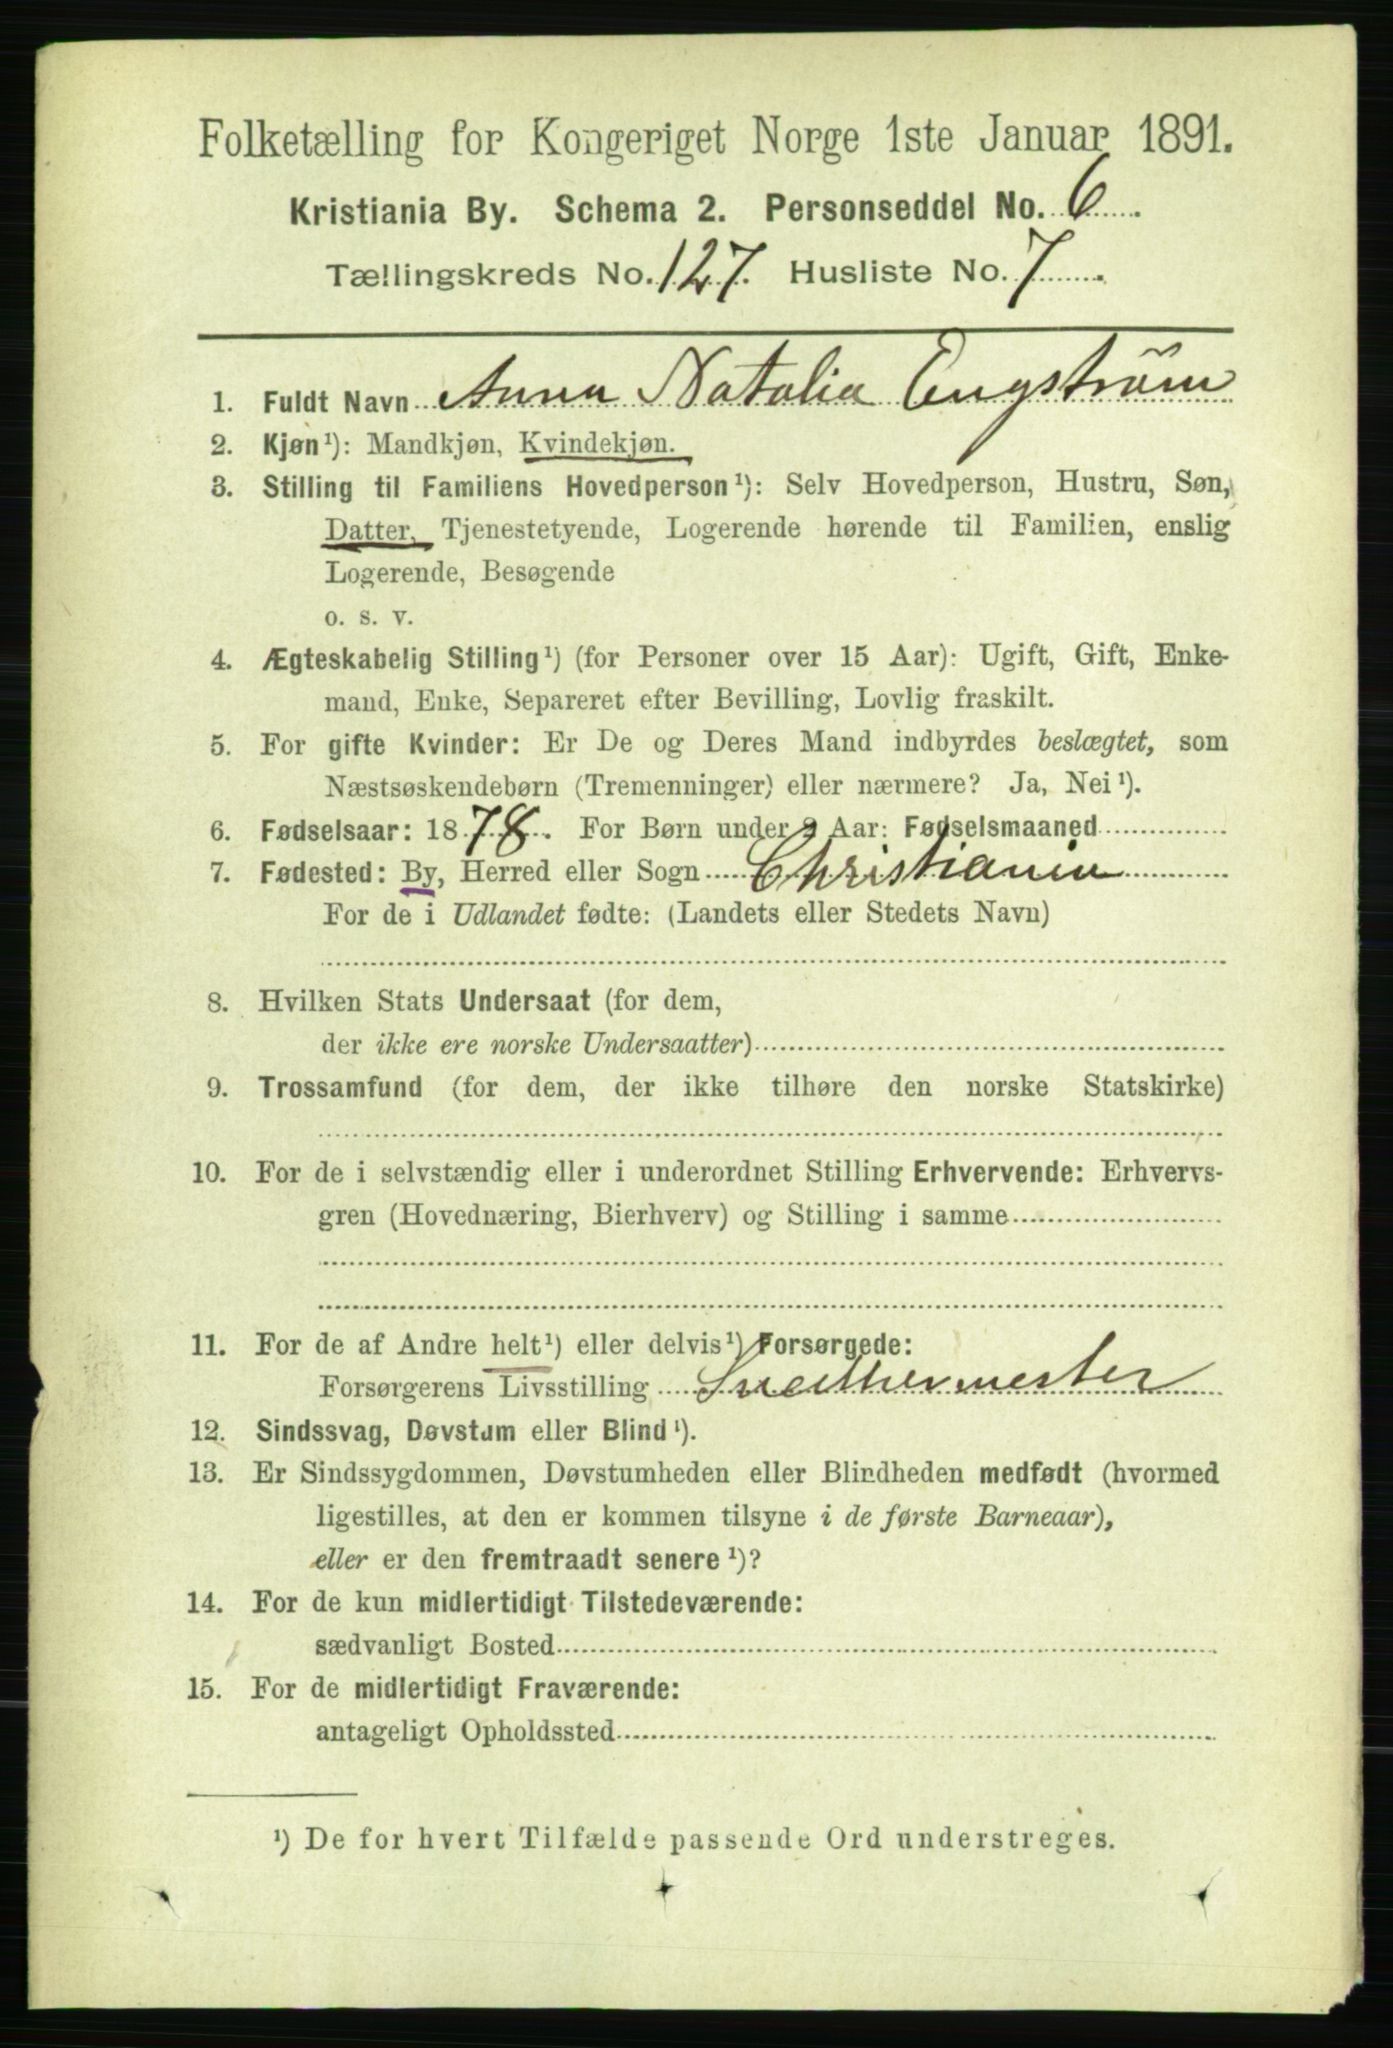 Folketælling for Kongeriget Norge 1ste Januar 1891.
Kristiania By. Schema 2. Personseddel No. 6.
Tællingskreds No. 127. Husliste No. 7.
1. Fuldt Navn Anna Natalia Engström
2. Kjøn¹): Mandkjøn, Kvindekjøn.
3. Stilling til Familiens Hovedperson¹): Selv Hovedperson, Hustru, Søn,
Datter, Tjenestetyende, Logerende hørende til Familien, enslig
Logerende, Besøgende
o. s. v.
4. Ægteskabelig Stilling¹) (for Personer over 15 Aar): Ugift, Gift, Enke-
mand, Enke, Separeret efter Bevilling, Lovlig fraskilt.
5. For gifte Kvinder: Er De og Deres Mand indbyrdes beslægtet, som
Næstsøskendebørn (Tremenninger) eller nærmere? Ja, Nei¹).
6. Fødselsaar: 1878. For Børn under 2 Aar: Fødselsmaaned
7. Fødested: By, Herred eller Sogn Christiania
For de i Udlandet fødte: (Landets eller Stedets Navn)
8. Hvilken Stats Undersaat (for dem,
der ikke ere norske Undersaatter)
9. Trossamfund (for dem, der ikke tilhøre den norske Statskirke)
10. For de i selvstændig eller i underordnet Stilling Erhvervende: Erhvervs-
gren (Hovednæring, Bierhverv) og Stilling i samme
11. For de af Andre helt¹) eller delvis¹) Forsørgede:
Forsørgerens Livsstilling
12. Sindssvag, Døvstum eller Blind¹).
13. Er Sindssygdommen, Døvstumheden eller Blindheden medfødt (hvormed
ligestilles, at den er kommen tilsyne i de første Barneaar),
eller er den fremtraadt senere¹)?
14. For de kun midlertidigt Tilstedeværende:
sædvanligt Bosted
15. For de midlertidigt Fraværende:
antageligt Opholdssted
¹) De for hvert Tilfælde passende Ord understreges.